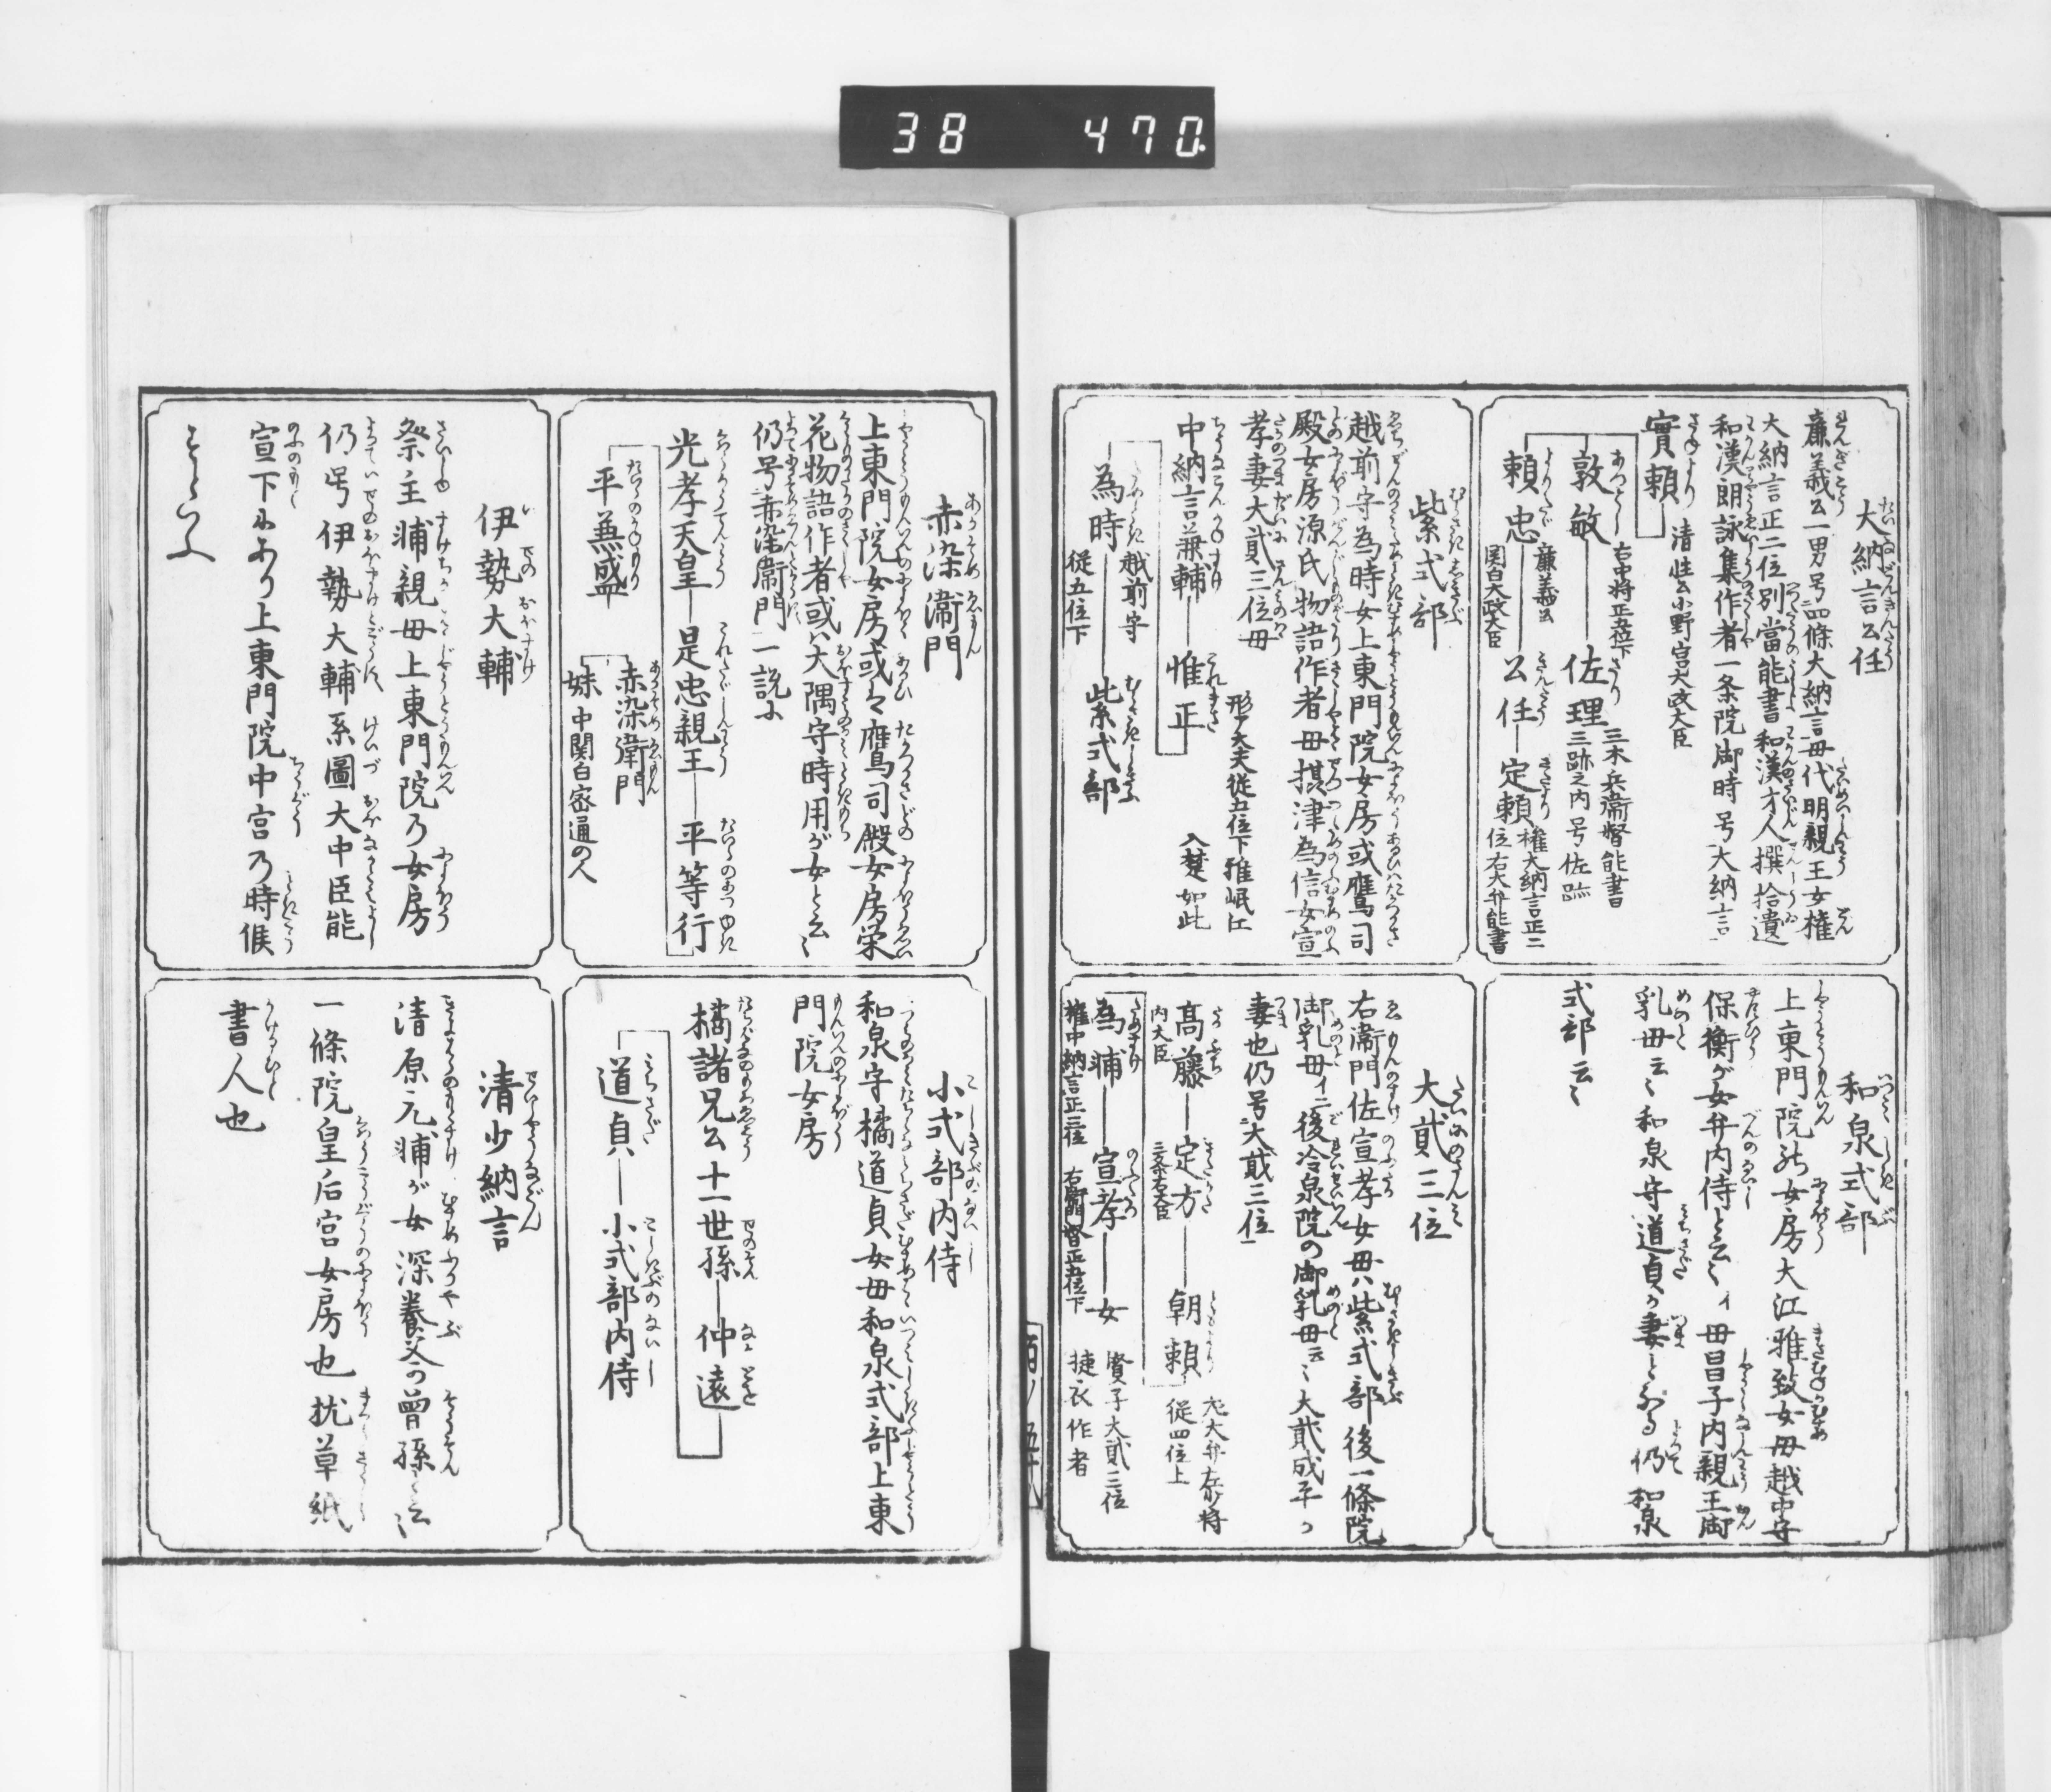 38 470
大納言公任
廉義公一男号四條大納言母代明親王女権
大納言正二位別當能書和漢才人撰拾遺
和漢朗詠集作者一条院御時号大納言
實頼 清慎公小野宮大政大臣
敦敏 右中将正五位下
佐理 三木兵衛督能書
三跡之内号佐跡
頼忠 廉義公
関白大政大臣
公任
定頼 権大納言正二
位右大弁能書
紫式部
越前守為時女上東門院女房或鷹司
殿女房源氏物語作者母摂津為信女宣
孝妻大貳三位母
中納言兼輔
惟正 形ア大夫従五位下雅岷江
入楚如此
為時 越前守
従五位下
紫式部
和泉式部
上東門院の女房大江雅致女母越中守
保衡が女弁内侍と云々イ母昌子内親王御
乳母云々和泉守道貞の妻となる仍和泉
式部云々
大貳三位
右衛門佐宣孝女母ハ紫式部後一條院
御乳母イニ後冷泉院の御乳母云々大貮成平の
妻也仍号大貮三位
高藤 内大臣
定方 三条右大臣
朝頼 左大弁左少将
従四位上
為輔 権中納言正三位
宣孝 右衛門督正五位下
女 賢子大貳三位
狭衣作者
赤染衛門
上東門院女房或は鷹司殿女房栄
花物語作者或ハ大隅守時用が女と云々
仍号赤染衛門一説に
光孝天皇 是忠親王 平等行
平兼盛
赤染衛門
妹 中関白密通の人
小式部内侍
和泉守橘道貞女母和泉式部上東
門院女房
橘諸兄公十一世孫 仲遠
道貞 小式部内侍
伊勢大輔
祭主輔親母上東門院乃女房
仍号伊勢大輔系圖大中臣能
宣下にあり上東門院中宮乃時候
すといふ
清少納言
清原元輔が女深養父の曽孫と云
一條院皇后宮女房也枕草紙
書人也